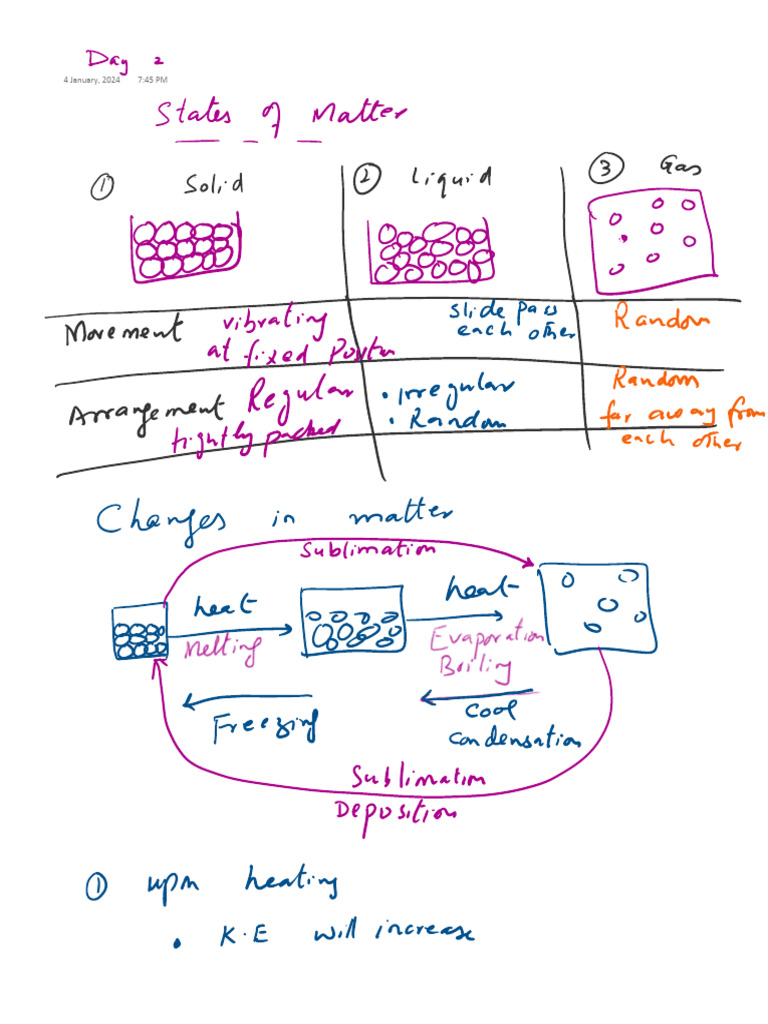 Day 2
4 January, 2024 7:45 PM
States of Matter
① Solid ② Liquid ③ Gas
Movement vibrating at fixed Positn slide pass each other Random
Arrangement Regular tightly packed • Irregular • Random Random far away from each other
Changes in matter
Sublimation
heat heat
Melting Evaporation
Boiling
Freezing cool
condensation
Sublimation
Deposition
① upon heating
• K.E will increase